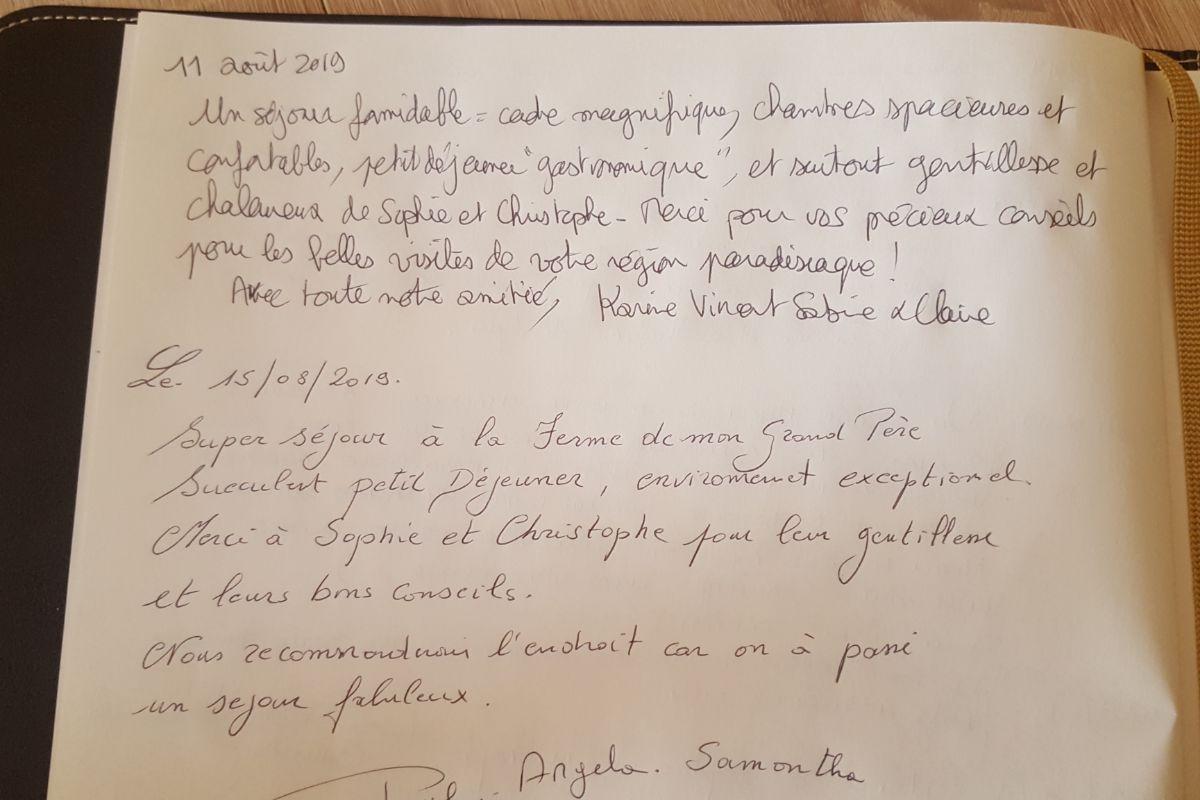 11 août 2019
Un séjour formidable = cadre magnifique, chambres spacieuses et
confortables, petit déjeuner "gastronomique", et surtout gentillesse et
chaleureux de Sophie et Christophe - Merci pour vos précieux conseils
pour les belles visites de votre région paradisiaque !
Avec toute notre amitié, Karine Vincent Sabine & Claire
Le 15/08/2019.
Super séjour à la Ferme de mon Grand Père
Succulent petit Déjeuner, enviromenet exceptionel.
Merci à Sophie et Christophe pour leur gentillesse
et leurs bons conseils.
Nous recommandrons l'endroit car on à passé
un sejour fabuleux.
Angela. Samantha